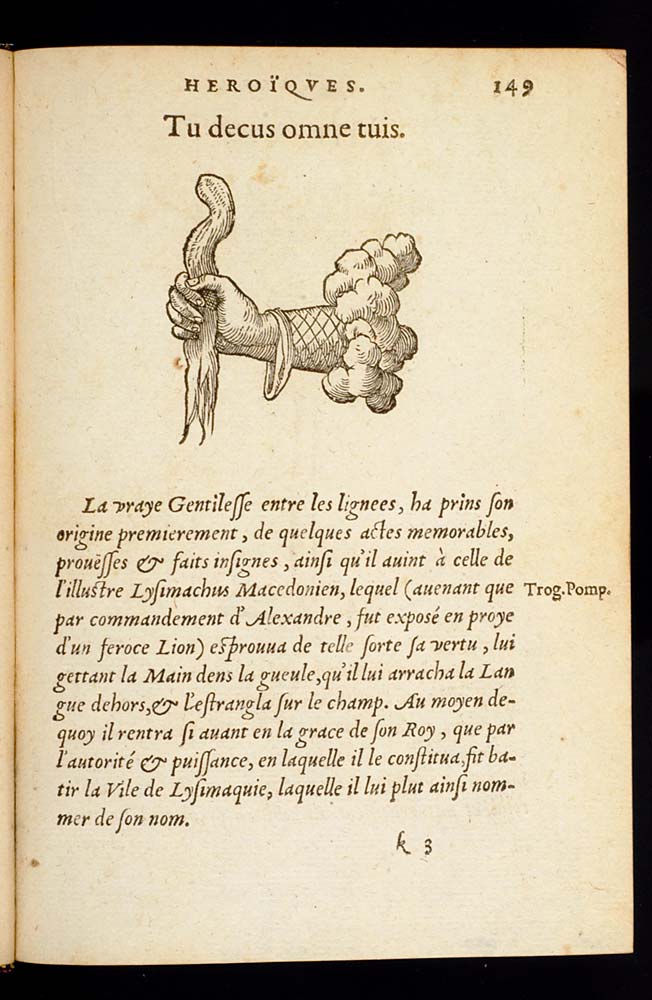 HEROÏQVES. 149
Tu decus omne tuis.
La vraye Gentilesse entre les lignees, ha prins son
origine premierement, de quelques actes memorables,
prouësses & faits insignes, ainsi qu'il auint à celle de
l'illustre Lysimachus Macedonien, lequel (auenant que Trog.Pomp.
par commandement d'Alexandre, fut exposé en proye
d'un feroce Lion) esprouua de telle sorte sa vertu, lui
gettant la Main dens la gueule, qu'il lui arracha la Lan
gue dehors, & l'estrangla sur le champ. Au moyen de-
quoy il rentra si auant en la grace de son Roy, que par
l'autorité & puissance, en laquelle il le constitua, fit ba-
tir la Vile de Lysimaquie, laquelle il lui plut ainsi nom-
mer de son nom.
k 3